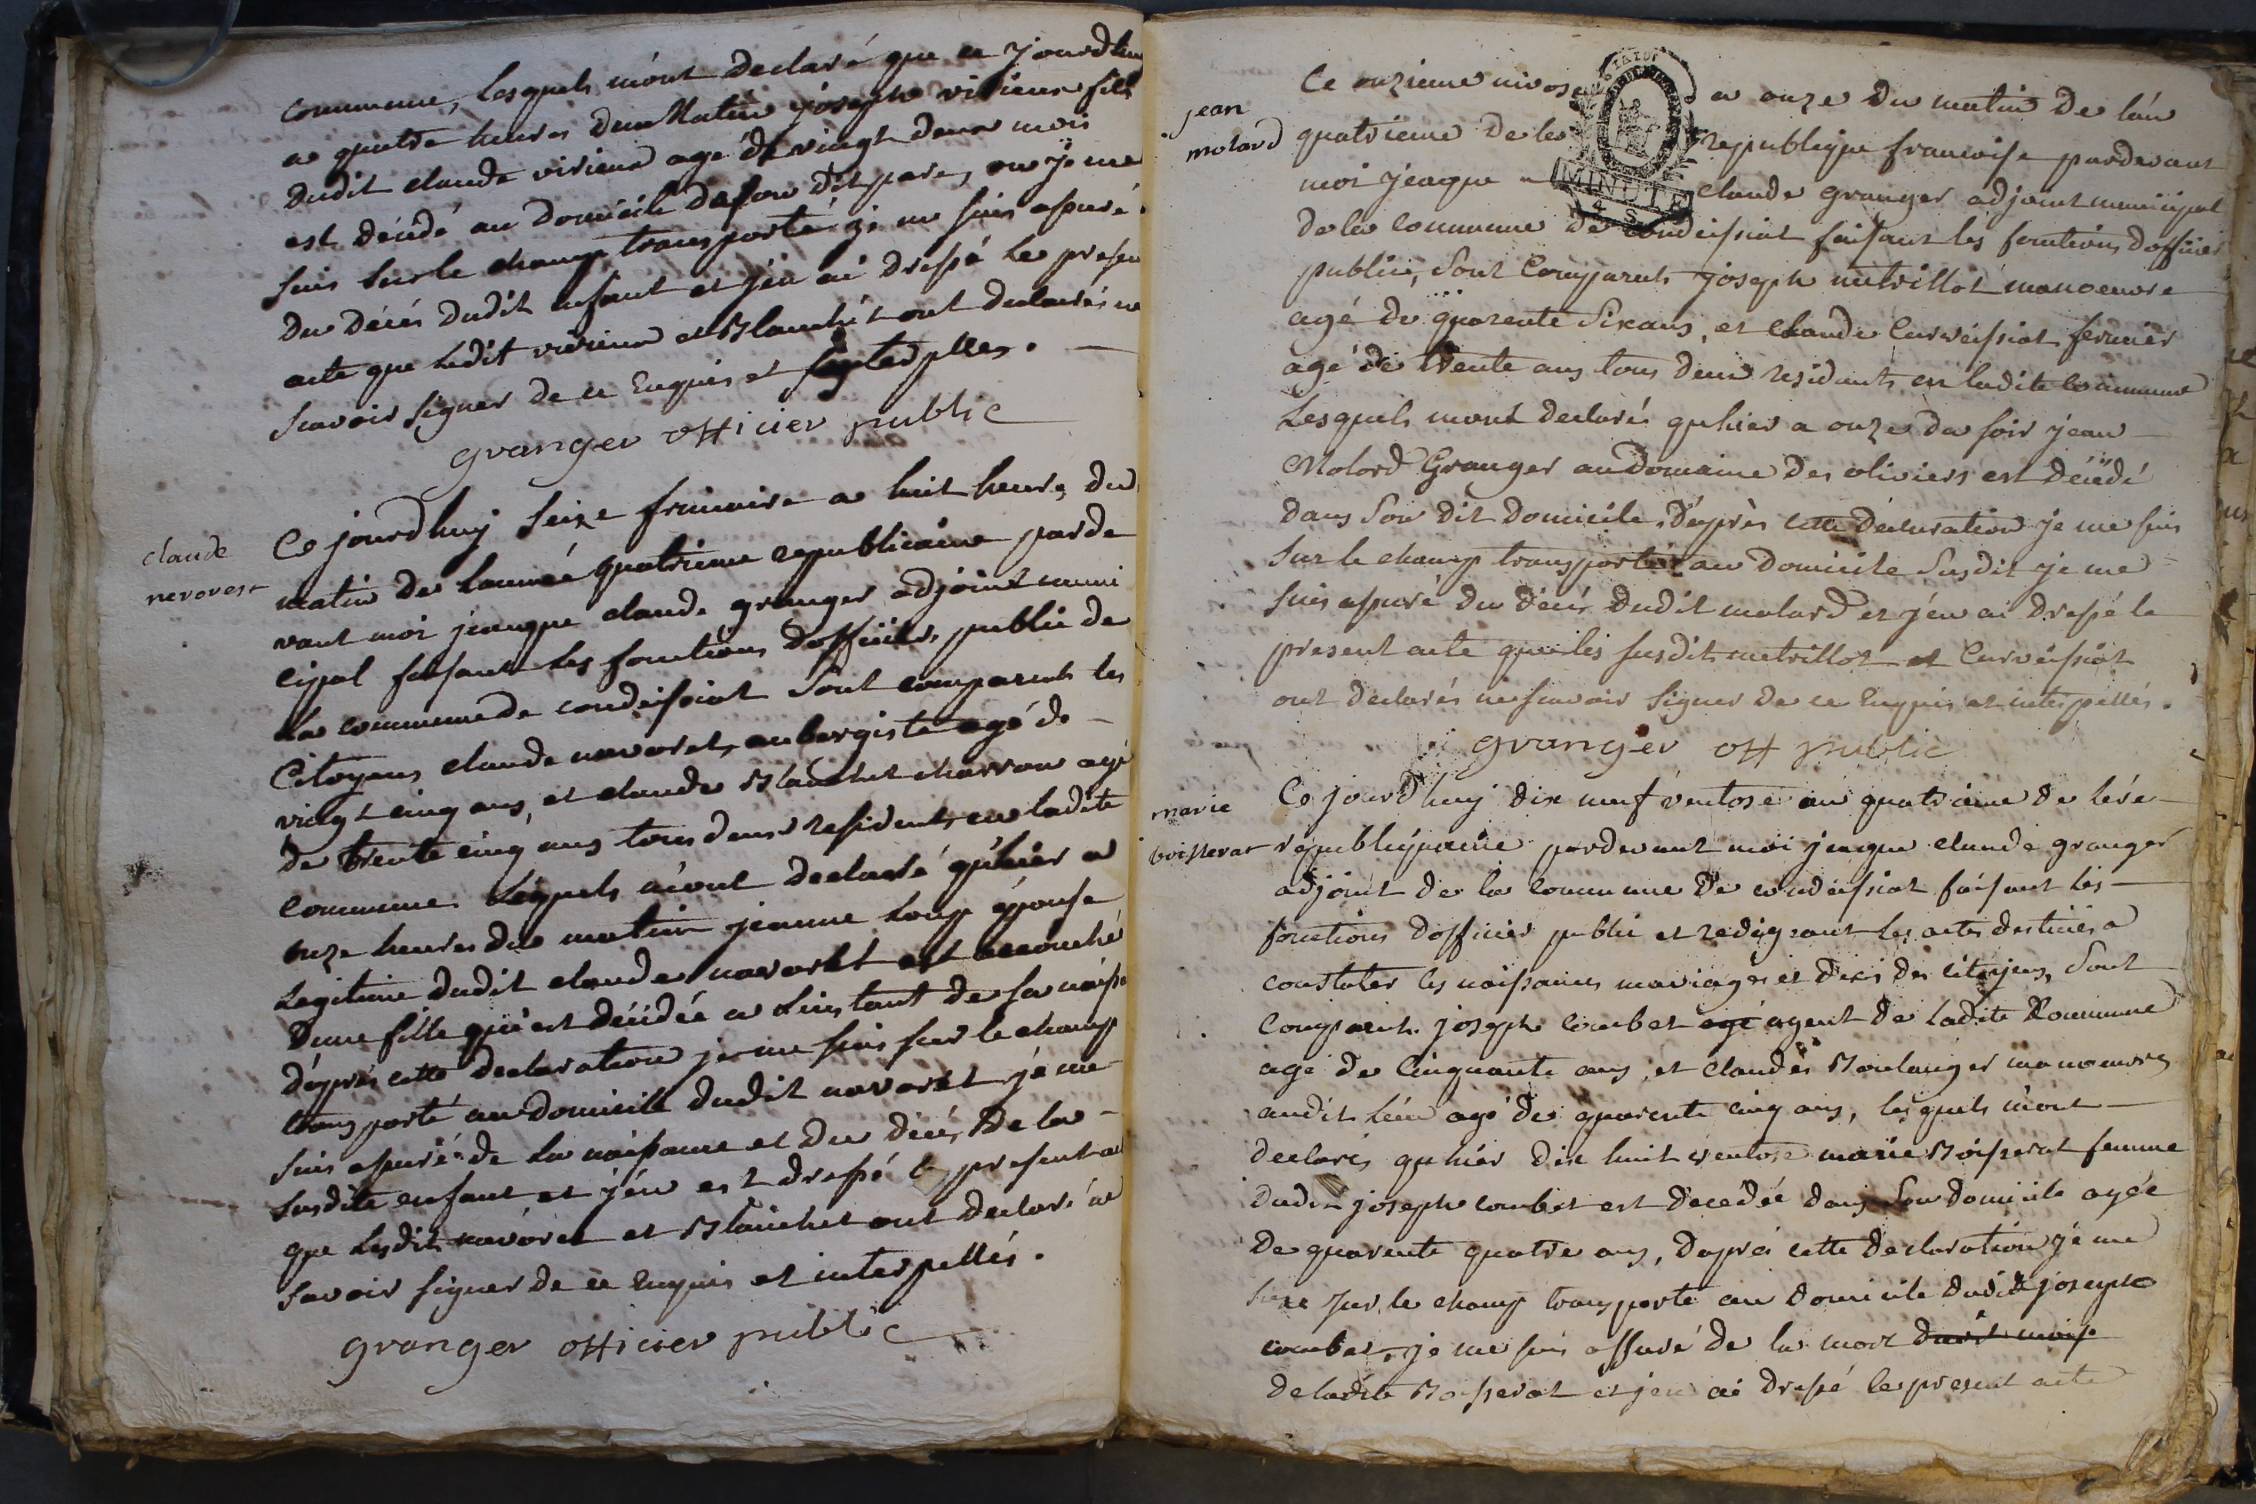 commune, lesquels m'ont declaré que ce jourdhuy
a quatre heures du matin joseph vivieux fils
dudit claude vivieux agé de vingt deux mois
est décédé au domicile de son dit pare, ou je me
suis sur le champ transporté je me suis assuré
du décés dudit enfant et j'en ai dressé le presen
acte que ledit vivieux et Blanchet ont declarés ne
scavoir signer de ce enquis et
granger officier public
claude
nevoret
Ce jourdhuy seize frimaire a huit heures du
matin de lannée quatrieme republicaine parde
vant moi jeaque claude granger adjoint muni
cipal faisant les fonctions dofficier public de
la commune de condeissiat sont comparents les
Citoyens claude navoret, aubergiste agé de
vingt cinq ans, et claude Blanchet charron agé
de trente cinq ans tous deux residents en ladite
commune. Lesquels m'ont declaré qu'hier a
onze heures du matin jeanne Loup épouse
Legitime dudit claude navoret est accouché
Dune fille qui est décédée a Linstant de sa naiss
d'après cette declaration je me suis sur le champ
transporté au domicile dudit navoret je me
suis assuré de La naissance et du décés de la
susdite enfant et j'en est dressé le present a
que lesdits navoret et Blanchet ont declaré ne
savoir signer de ce enquis et interpellés.
granger officier public
jean
molard
Ce onzieme nivose a onze du matin de l'an
quatrieme de la republique francoise pardevant
moi jeaque claude granger adjoint municipal
de la commune de condeissiat faisant les fonctions dofficier
public, sont comparents joseph metrillot manoeuvre
agé de quarente six ans, et claude Curveissiat fermier
agé de trente ans tous deux residants en ladite commune
Lesquels mont declarés qu'hier a onze du soir jean
Molard Granger au Domaine des oliviers est décédé
dans son dit domicile, d'après cette déclaration je me suis
sur le champ transporté au domicile susdit je me
suis assuré du décés dudit molard et j'en ai dressé le
present acte que les susdits metrillot et Curveissiat
ont declarés ne scavoir signer de ce enquis et interpellés.
granger off public
marie
boisserat
Ce jourdhuy dix neuf ventose an quatrieme de lére
républiquaine pardevant moi jeaque claude granger
adjoint de la commune de condeissiat faisant les
fonctions dofficier public et redigeant les actes destinés a
constater les naissances mariages et deces des citoyens, sont
comparents joseph combet agé agent de ladite Commune
agé de Cinquante ans, et claude Boulanger manoeuvre
audit lieu agé de quarente cinq ans, lesquels m'ont
declarés qu'hiér dix huit ventose marie Boisserat femme
dudit joseph combet est decédée dans son domicile agée
de quarente quatre ans, dapres cette declaration je me
suis sur le champ transporté au domicile dudit joseph
combet, je me suis assuré de la mort
de ladite Boisserat et jen ai dressé le present acte
MINUTE